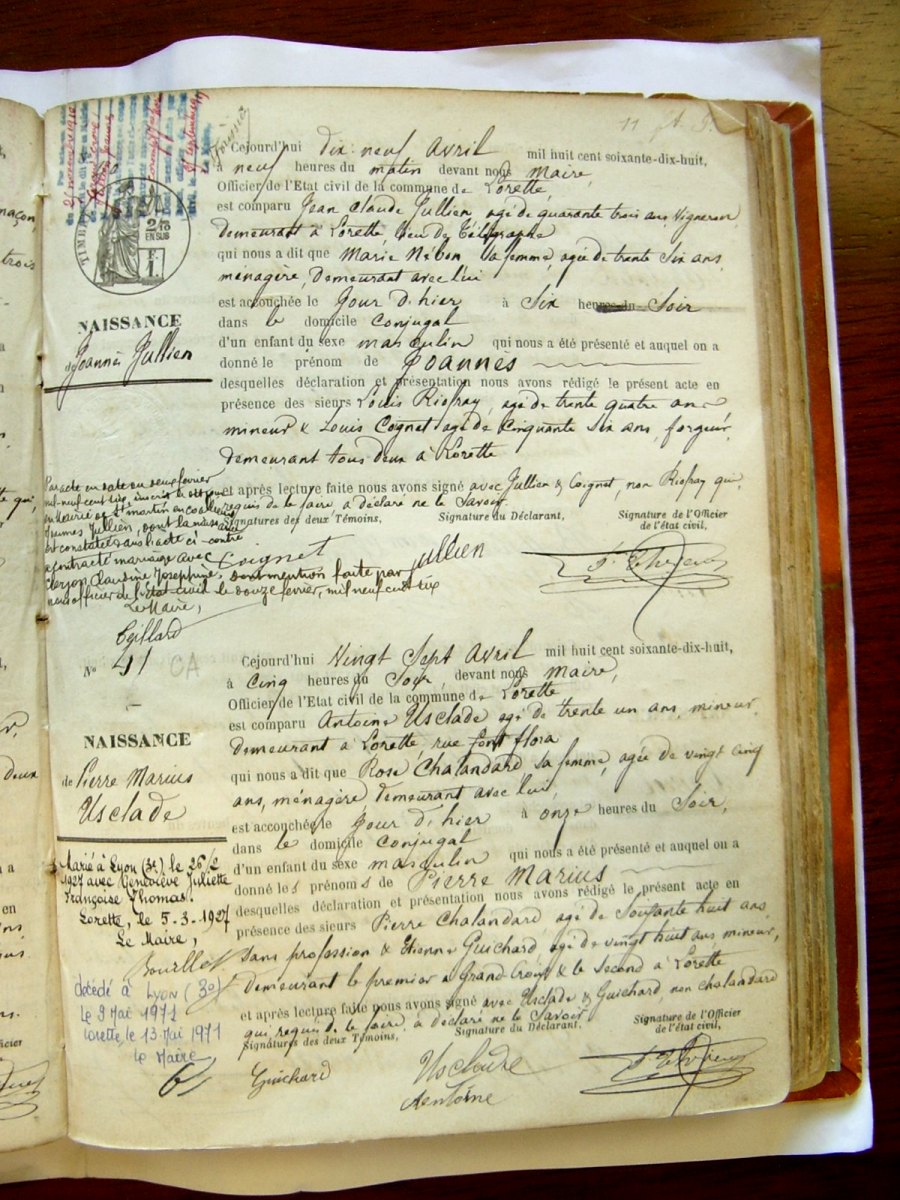 11
TIMBRE
2/10
EN SUS
F.
1.
NAISSANCE
de Joannès Jullien
Cejourd'hui dix neuf Avril mil huit cent soixante-dix-huit,
à neuf heures du matin devant nous Maire,
Officier de l'Etat civil de la commune de Lorette
est comparu Jean Claude Jullien, agé de quarante trois ans, Vigneron
demeurant à Lorette, lieu du Télégraphe
qui nous a dit que Marie Nebon sa femme, agée de trente six ans
ménagère, demeurant avec lui
est accouchée le Jour d'hier à Six heures du Soir
dans le domicile conjugal
d'un enfant du sexe masculin qui nous a été présenté et auquel on a
donné le prénom de Joannès
desquelles déclaration et présentation nous avons rédigé le présent acte en
présence des sieurs Louis Riofray, agé de trente quatre ans
mineur & Louis Cognet agé de Cinquante Six ans, forgeur,
demeurant tous deux à Lorette
et après lecture faite nous avons signé avec Jullien & Coignet, non Riofray qui,
requis de le faire, a déclaré ne le Savoir
Signatures des deux Témoins, Signature du Déclarant, Signature de l'Officier
de l'état civil,
Coignet Jullien
Par acte en date du deux février
mil-neuf-cent-dix, inscrit
mairie de St martin en coailleux
Jullien, dont la naissance
est constatée dans l'acte ci-contre
a contracté mariage avec
Clerjon Claudine Josephine, dont mention faite par
nous officier de l'état civil le douze février, mil neuf cent dix
Le Maire,
Teillard
N° 41 CA
NAISSANCE
de Pierre Marius
Usclade
Cejourd'hui Vingt Sept Avril mil huit cent soixante-dix-huit,
à Cinq heures du Soir, devant nous Maire,
Officier de l'Etat civil de la commune de Lorette
est comparu Antoine Usclade agé de trente un ans, mineur
demeurant à Lorette, rue font flora
qui nous a dit que Rose Chalandard sa femme, agée de vingt cinq
ans, ménagère, demeurant avec lui,
est accouchée le Jour d'hier à onze heures du Soir,
dans le domicile conjugal
d'un enfant du sexe masculin qui nous a été présenté et auquel on a
donné les prénoms de Pierre Marius
desquelles déclaration et présentation nous avons rédigé le présent acte en
présence des sieurs Pierre Chalandard agé de Soixante huit ans
Sans profession & Etienne Guichard agé de vingt huit ans mineur,
demeurant le premier à Grand Croix & le Second à Lorette
et après lecture faite nous avons signé avec Usclade & Guichard, non chalandard
qui requis de le faire, a déclaré ne le Savoir
Signatures des deux Témoins, Signature du Déclarant, Signature de l'Officier
de l'état civil,
Guichard Usclade
Antoine
Marié à Lyon (3e) le 26/2
1927 avec Geneviève Juliette
Françoise Thomas.
Lorette, le 5.3.1927
Le Maire,
Bourllet
décédé à Lyon (3e)
le 9 Mai 1971
Lorette, le 13 Mai 1971
Le Maire,